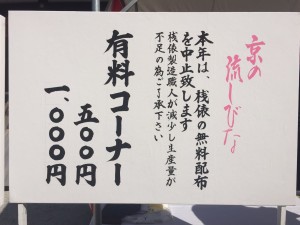 京の
流しびな
本年は、桟俵の無料配布
を中止致します
桟俵製造職人が減少し生産量が
不足の為ご了承下さい
有料コーナー
五〇〇円
一、〇〇〇円